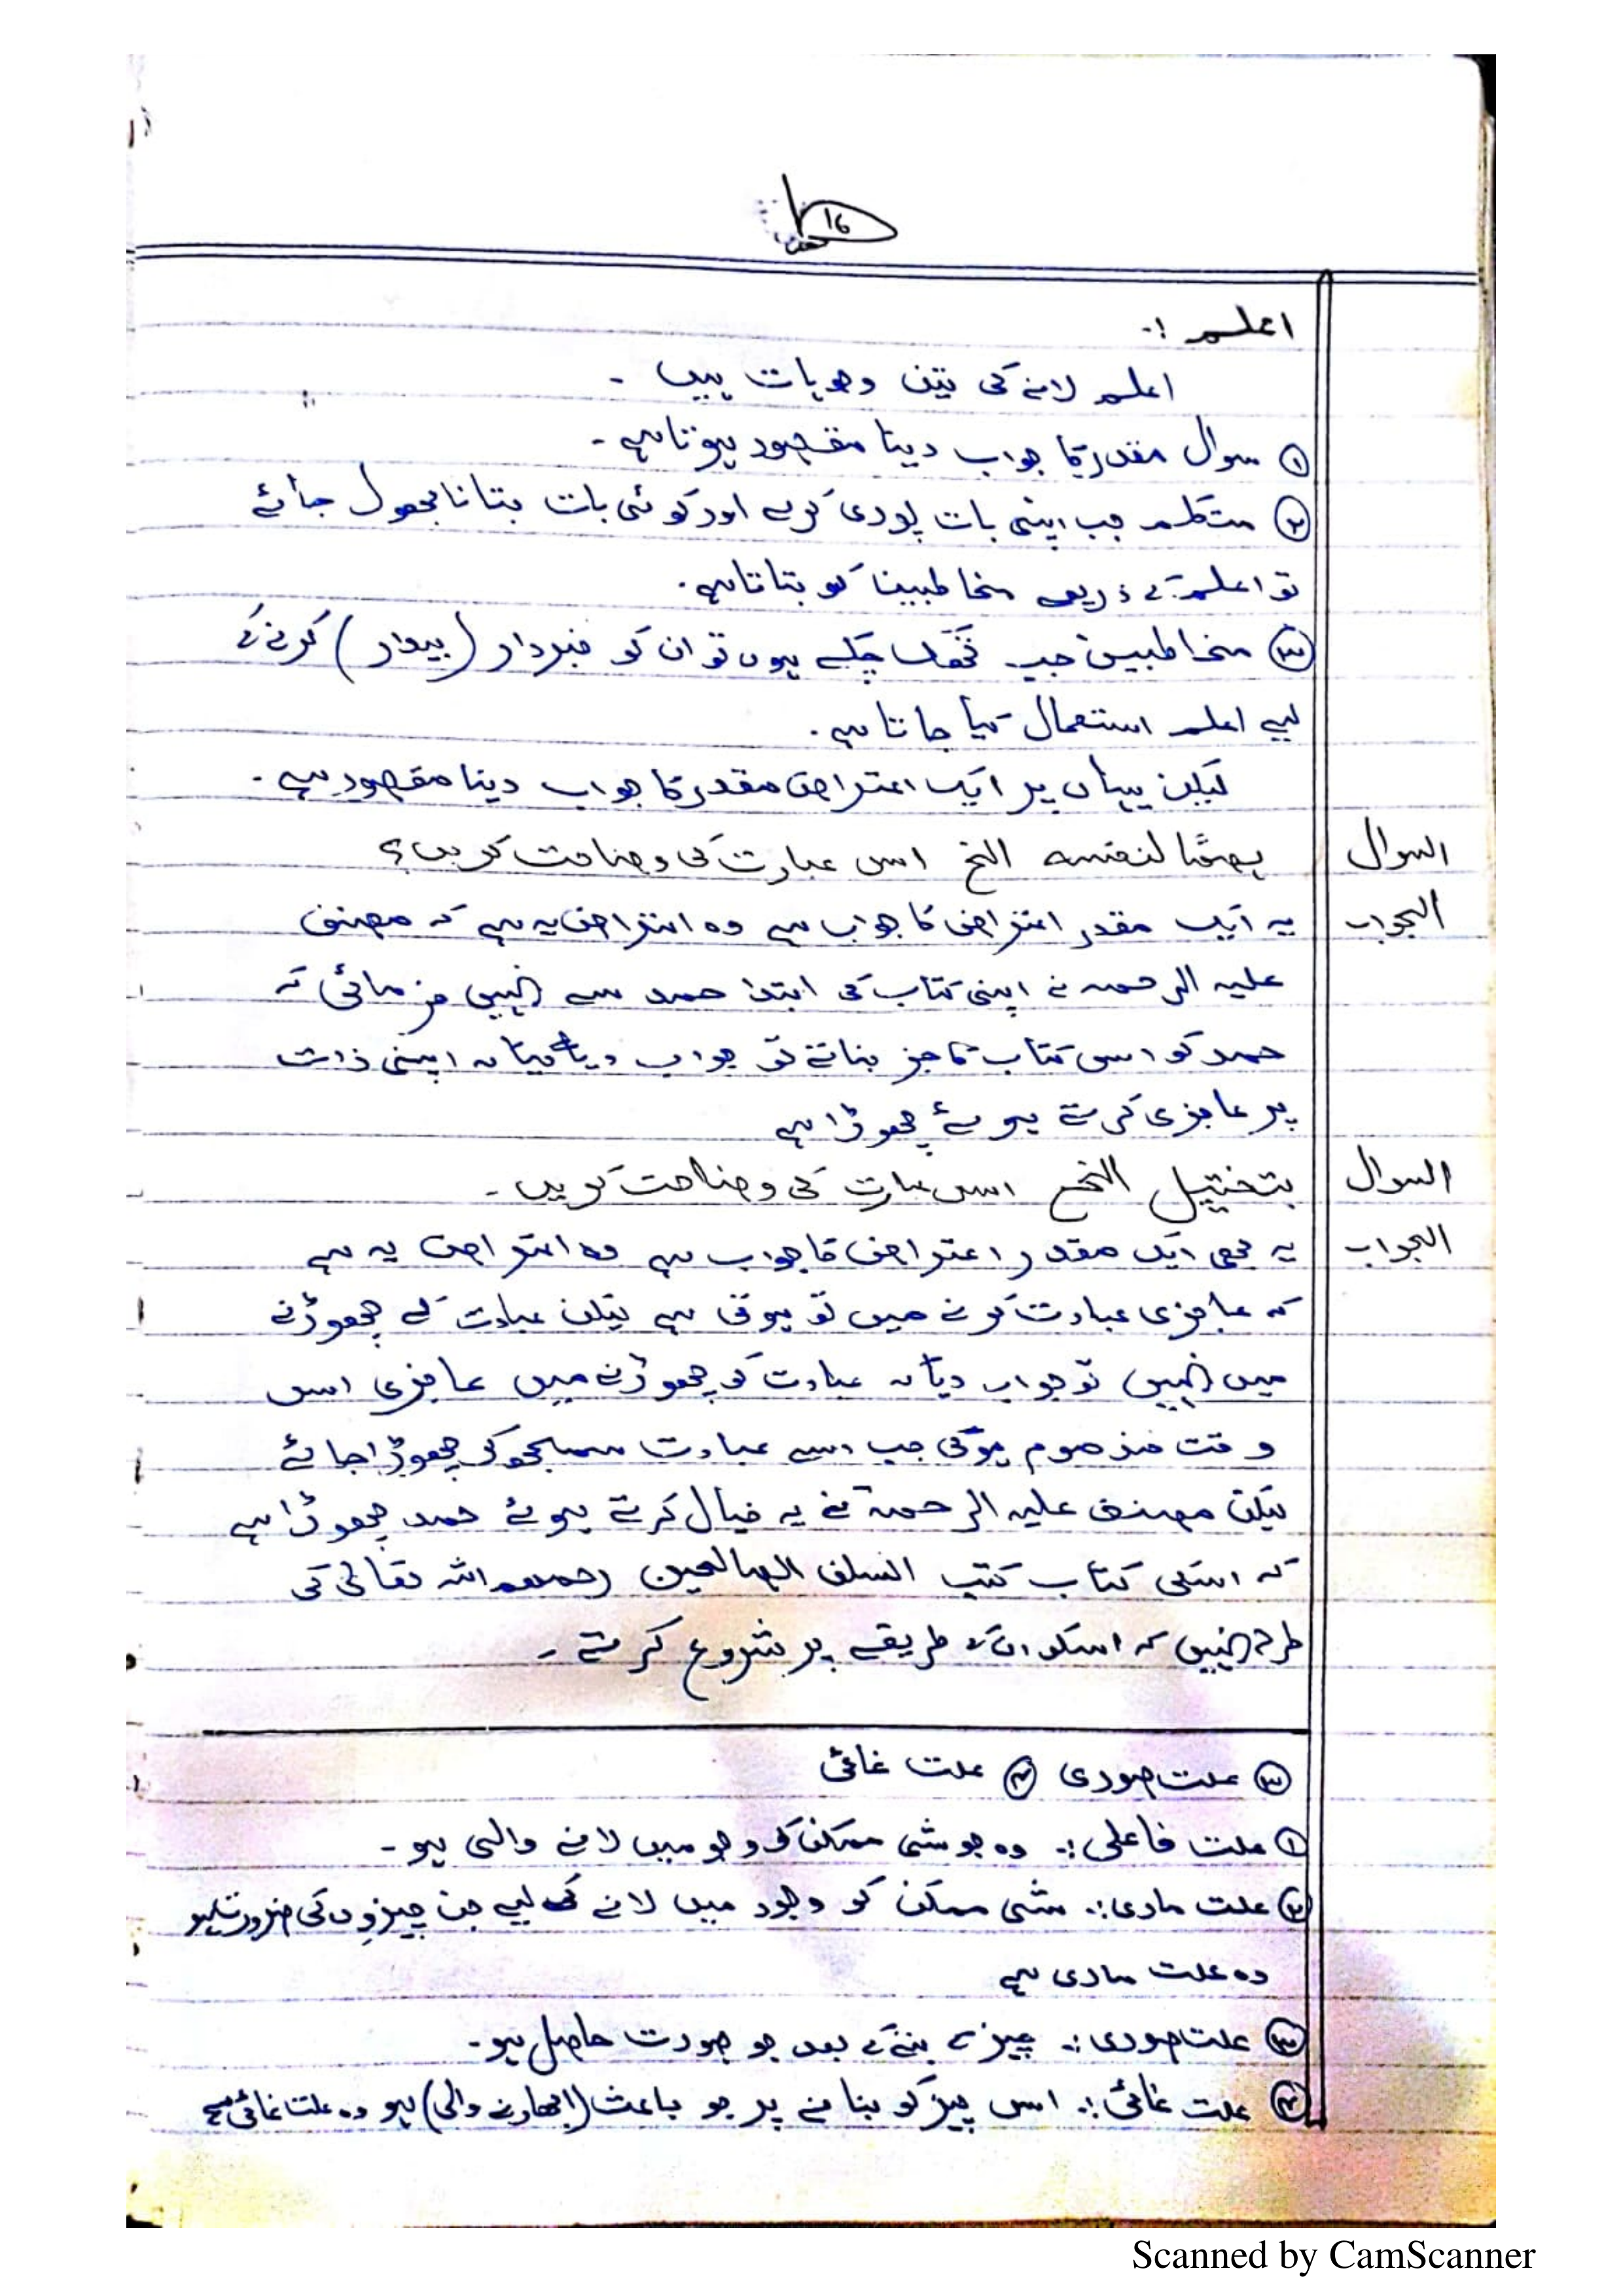 16
اعلم :۔
اعلم لانے کی تین وجوہات ہیں ۔
① سوال مقدر کا جواب دینا مقصود ہوتا ہے ۔
② متکلم جب اپنی بات پوری کرے اور کوئی بات بتانا بھول جائے
تو اعلم کے ذریعے مخاطبین کو بتاتا ہے ۔
③ مخاطبین جب تھک چکے ہوں تو ان کو خبردار (بیدار) کرنے کے
لیے اعلم استعمال کیا جاتا ہے ۔
لیکن یہاں پر ایک اعتراض مقدر کا جواب دینا مقصود ہے ۔
السوال ھضما لنفسہ الخ اس عبارت کی وضاحت کریں؟
الجواب یہ ایک مقدر اعتراض کا جواب ہے وہ اعتراض یہ ہے کہ مصنف
علیہ الرحمہ نے اپنی کتاب کی ابتدا حمد سے نہیں فرمائی کہ
حمد کو اس کتاب کا جز بناتے تو جواب دیا کہ اپنی ذات
پر عاجزی کرتے ہوئے چھوڑا ہے
السوال بتخییل الخ اس عبارت کی وضاحت کریں ۔
الجواب یہ بھی ایک مقدر اعتراض کا جواب ہے وہ اعتراض یہ ہے
کہ عاجزی عبادت کرنے میں تو ہوتی ہے لیکن عبادت کے چھوڑنے
میں نہیں تو جواب دیا کہ عبادت کو چھوڑنے میں عاجزی اس
وقت مذموم ہوگی جب اسے عبادت سمجھ کر چھوڑا جائے
لیکن مصنف علیہ الرحمۃ نے یہ خیال کرتے ہوئے حمد چھوڑا ہے
کہ اسکی کتاب کتب السلف الصالحین رحمھم اللہ تعالی کی
طرح نہیں کہ اسکو ان کے طریقے پر شروع کرتے ۔
③ علت صوری ④ علت غائی
① علت فاعلی :۔ وہ جو شئی ممکن کو وجو میں لانے والی ہو ۔
② علت مادی :۔ شئی ممکن کو وجود میں لانے کے لیے جن چیزوں کی ضرورت ہو
وہ علت مادی ہے
③ علت صوری :۔ چیز کے بننے کے بعد جو صورت حاصل ہو ۔
④ علت غائی :۔ اس چیز کو بنانے پر جو باعث (ابھارنے والی) ہو وہ علت غائی ہے
Scanned by CamScanner